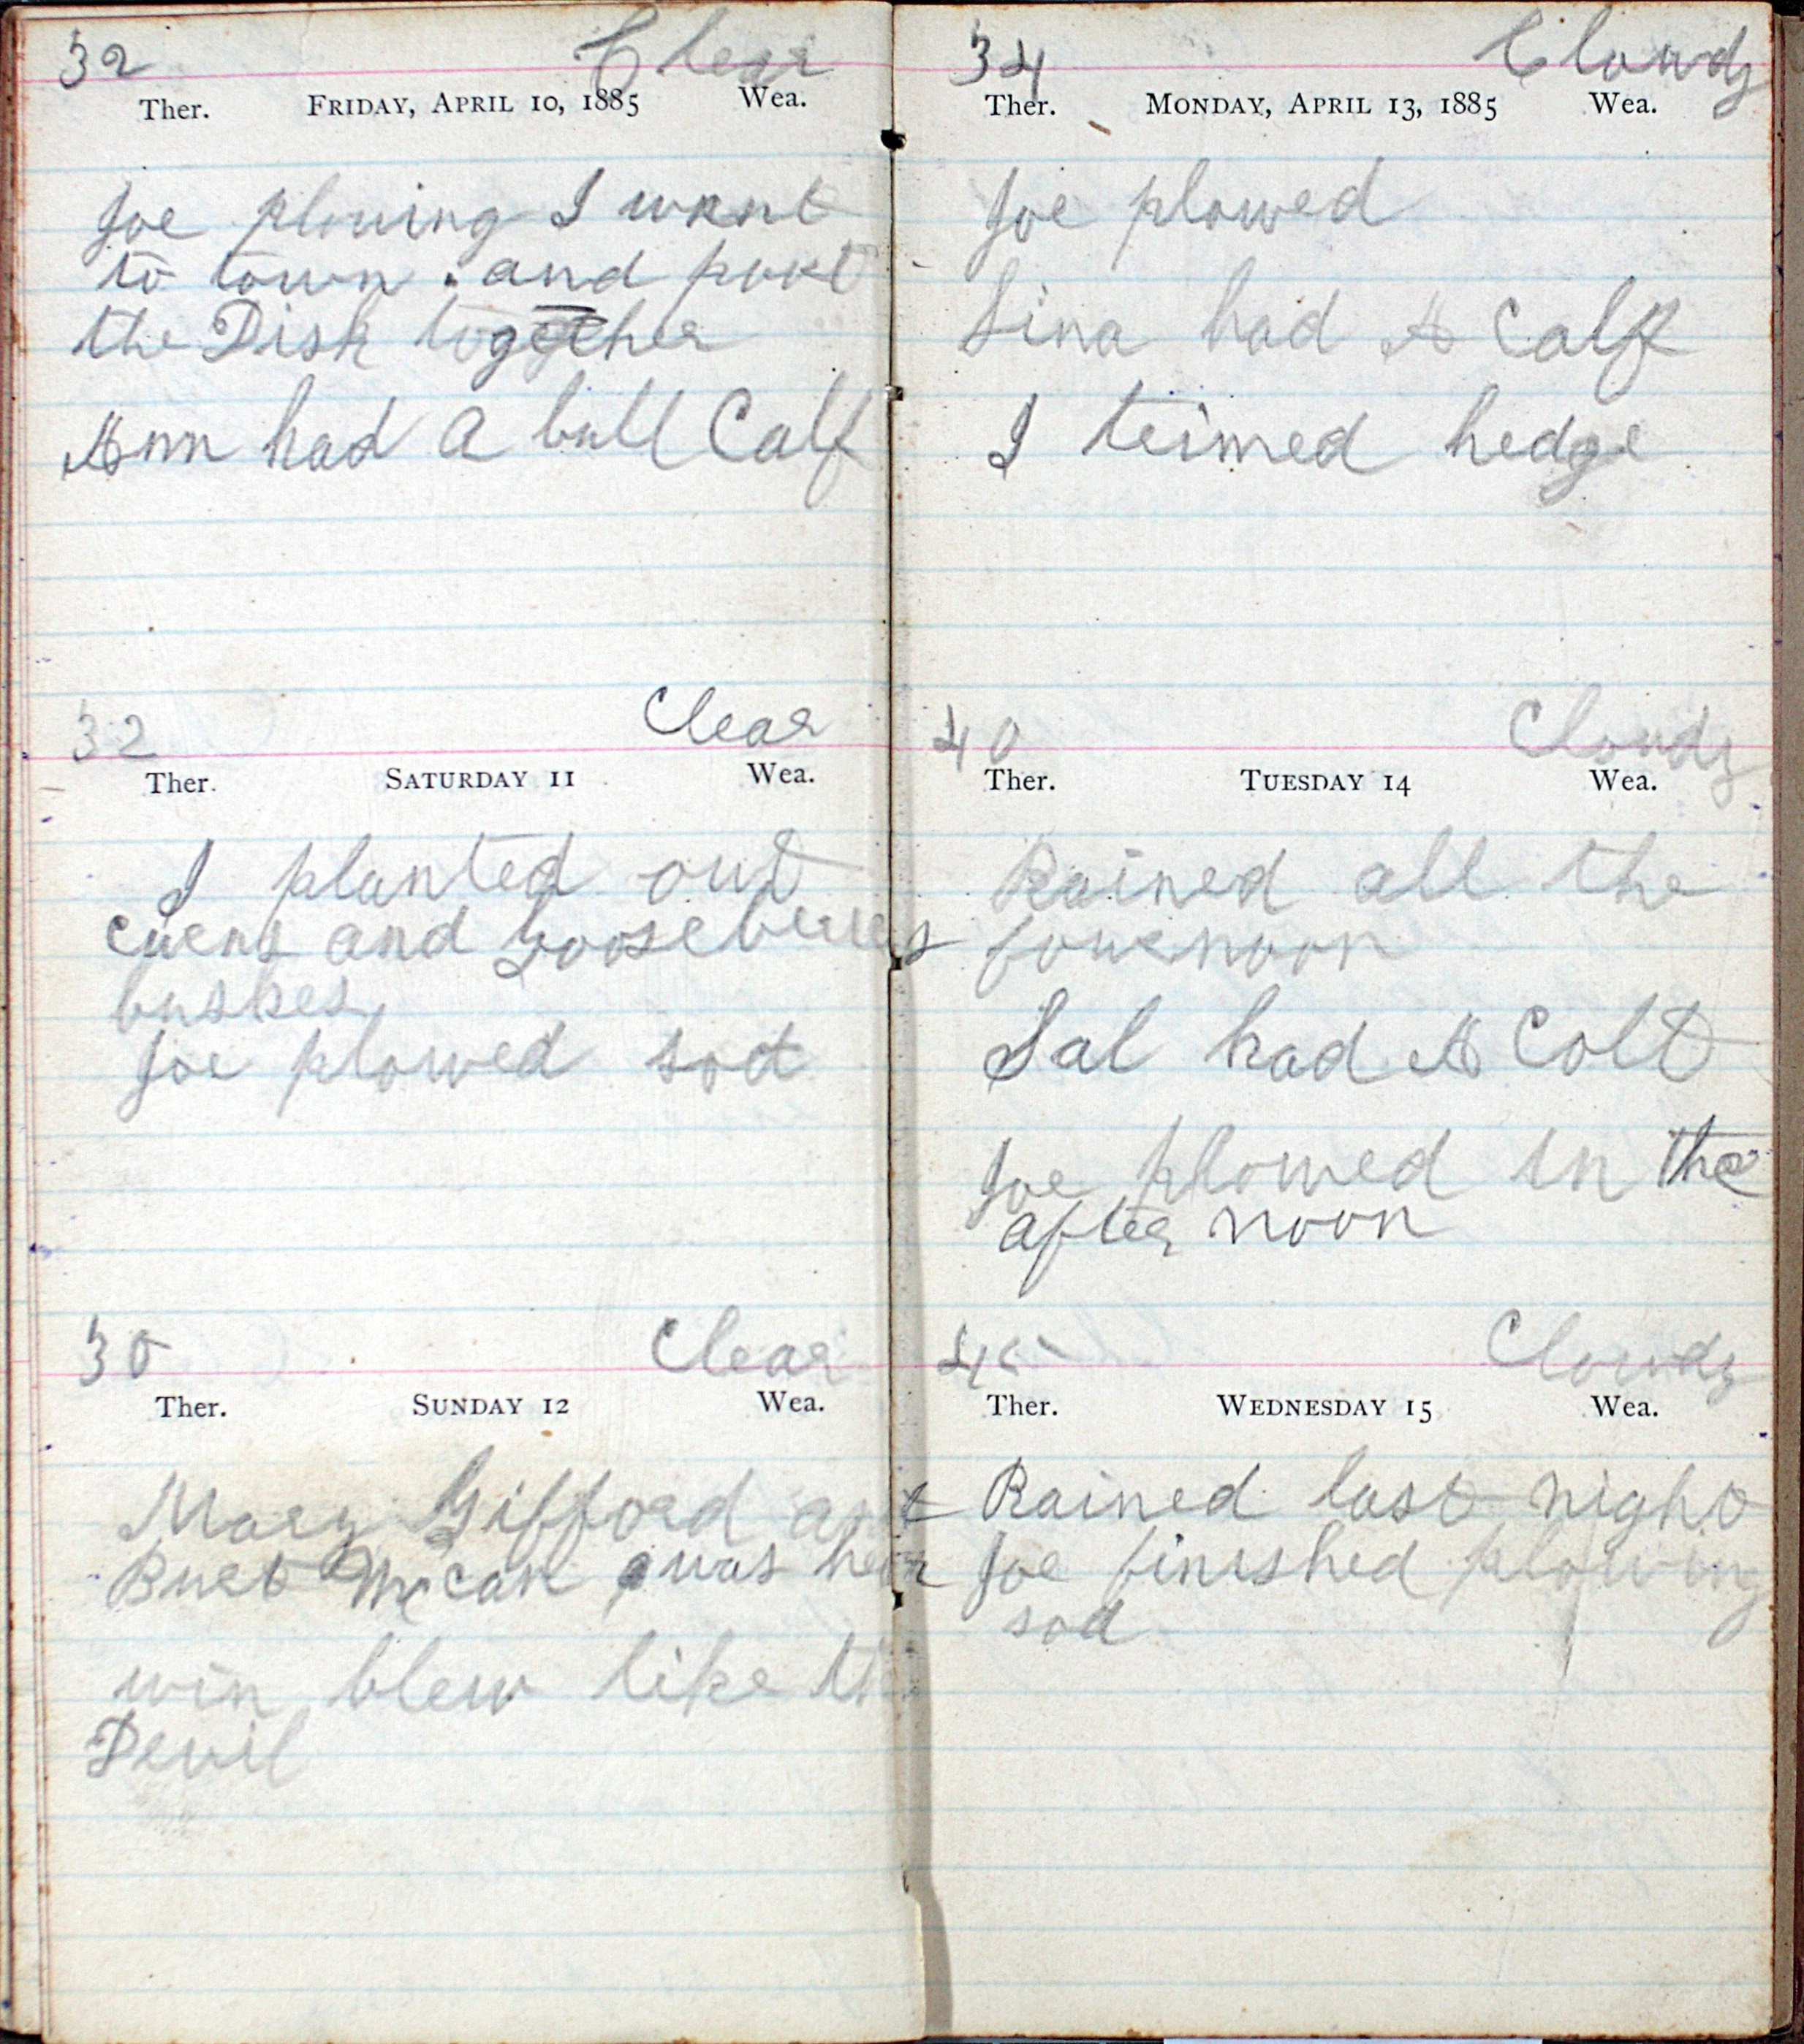 32 Clear
Ther. FRIDAY, APRIL 10, 1885 Wea.
Joe plowing I went
to town . and poot
the Disk together
Ann had A bull Calf
32 Clear
Ther. SATURDAY 11 Wea.
I planted out
and Gooseberres
bushes
Joe plowed sod
30 Clear
Ther. SUNDAY 12 Wea.
Mary Gifford and
Burt McCan was hear
win blew like the
Devil
34 Clowdy
Ther. MONDAY, APRIL 13, 1885 Wea.
Joe plowed
Lina had A Calf
I trimed hedge
40 Cloudy
Ther. TUESDAY 14 Wea.
Rained all the
fournoon
Sal had A Colt
Joe plowed in the
after noon
45 Clowdy
Ther. WEDNESDAY 15 Wea.
Rained last night
Joe finished plowing
sod